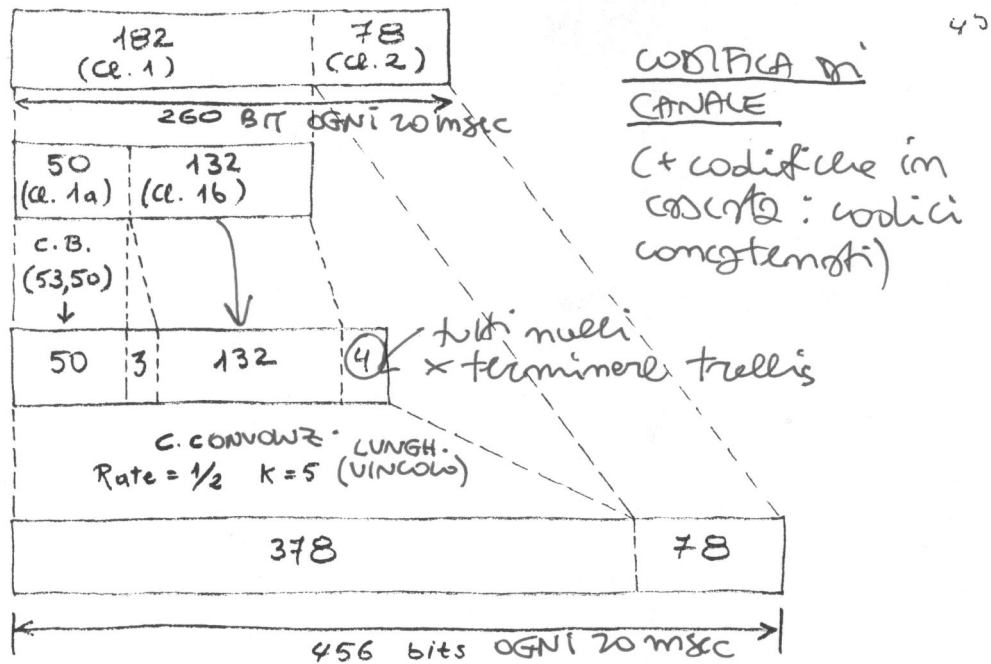 45
182 78
(Cl. 1) (Cl. 2)
260 BIT OGNI 20 msec
CODIFICA DI
CANALE
(+ codifiche in
cascata : codici
concatenati)
50 132
(Cl. 1a) (Cl. 1b)
C.B.
(53,50)
50 3 132 4
tutti nulli
x terminare trellis
C. CONVOLUZ. LUNGH.
Rate = 1/2 K = 5 (VINCOLO)
378 78
456 bits OGNI 20 msec